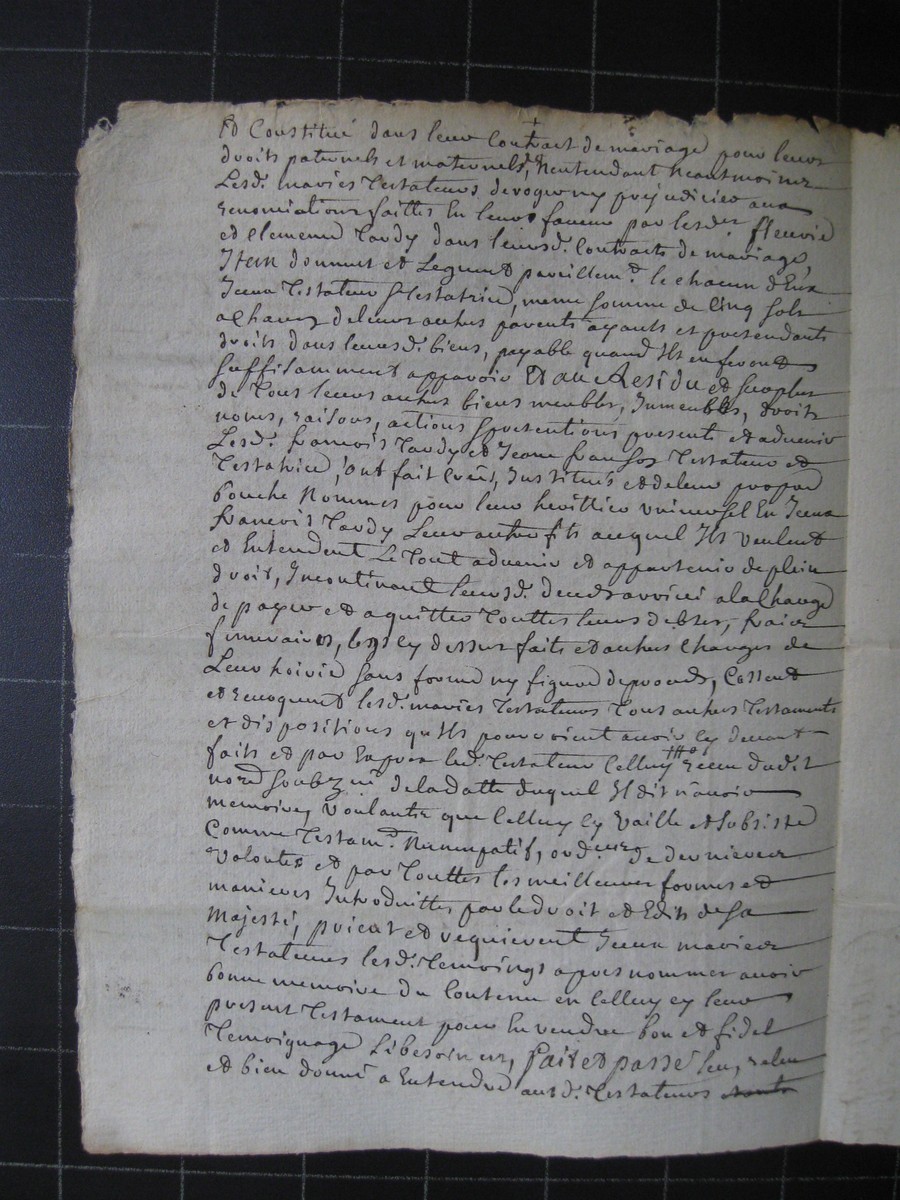 Et Constitué dans leur Contract de mariage pour leurs
droits paternels et maternels, Nentendant Neantmoins
Lesd. mariés Testateurs deroger ny prejudicier aux
renonciations faittes En leur faveur par lesd. fleurie
et Clemence Tardy dans leursd. Contracts de mariage,
Item donnent et Leguent pareillemt. le chacun d'Eux
Jceux Testateur & Testatrice, meme somme de Cinq sols
a Chacun de leurs autres parents ayants et pretendants
droits dans leursd. biens, payable quand Ils en feront
suffisamment apparoir Et au Residu et surplus
de Tous leurs autres biens meubles, Jmmeubles, droits
noms, raisons, actions & pretentions presents et advenir
Lesd. francois Tardy et Jeanne Testateur et
Testatrice, ont fait Creé, Jnstitués et de leur propre
bouche Nommés pour leur herittier universel En Jean
francois Tardy Leur autre fils auquel Ils veulent
et Entendent Le Tout advenir et appartenir de plein
droit, Jncontinant leursd. deceds arrivé a la Charge
de payer et aquitter Touttes leurs debtes, fraix
funeraires, legs cy dessus faits et autres Charges de
Leur hoirie sans forme ny figure de proces, Cassent
et revoquent lesd. mariés Testateurs Tous autres Testaments
et dispositions qu'Ils pourroient avoir cy devant
faits et par Expres led. Testateur Celluy receu dudit
nore. soubzné. de la datte duquel Il dit n'avoir
memoire, Voulants que Celluy cy Vaille et subsiste
Comme Testamt. Nuncupatif, ord. de derniere
Volonté et par Touttes les meilleures formes et
manieres Introduittes par le droit et Edits de sa
Majesté, prient et requierent Jceux mariés
Testateurs lesd. Temoings apres nommés avoir
bonne memoire du Contenu en Celluy cy leur
present Testament pour En rendre bon et fidel
Temoignage si besoin est, fait et passé leu, releu
et bien donné a Entendre auxd. Testateurs